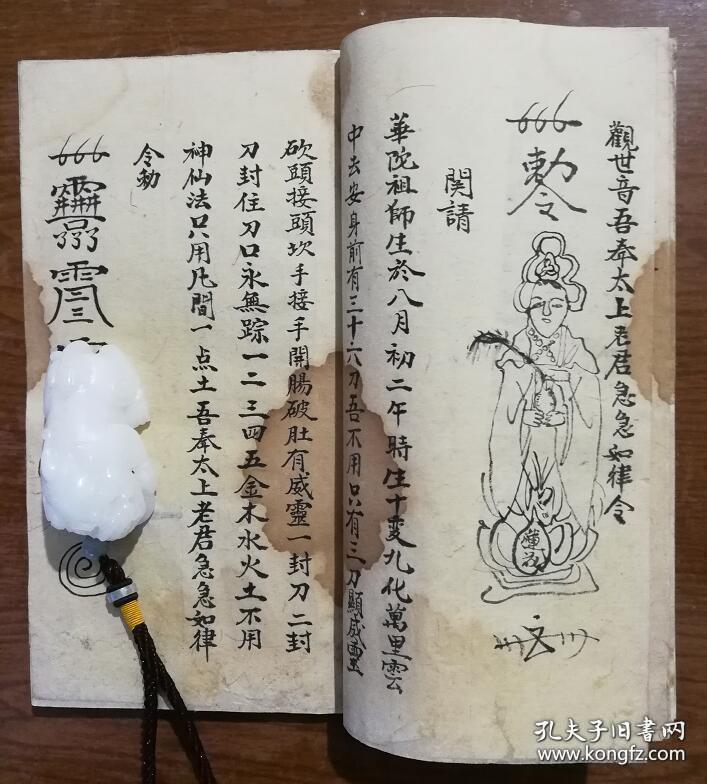 觀世音吾奉太上老君急急如律令
勅令
蓮花
関請
華陀祖師生於八月初二午時生十变九化萬里雲
中去安身前有三十六刀吾不用只有三刀顯威靈
砍頭接頭坎手接手開腸破肚有威靈一封刀二封
刀封住刀口永無踪一二三四五金木水火土不用
神仙法只用凡間一点土吾奉太上老君急急如律
令勅
孔夫子旧书网
www.kongfz.com